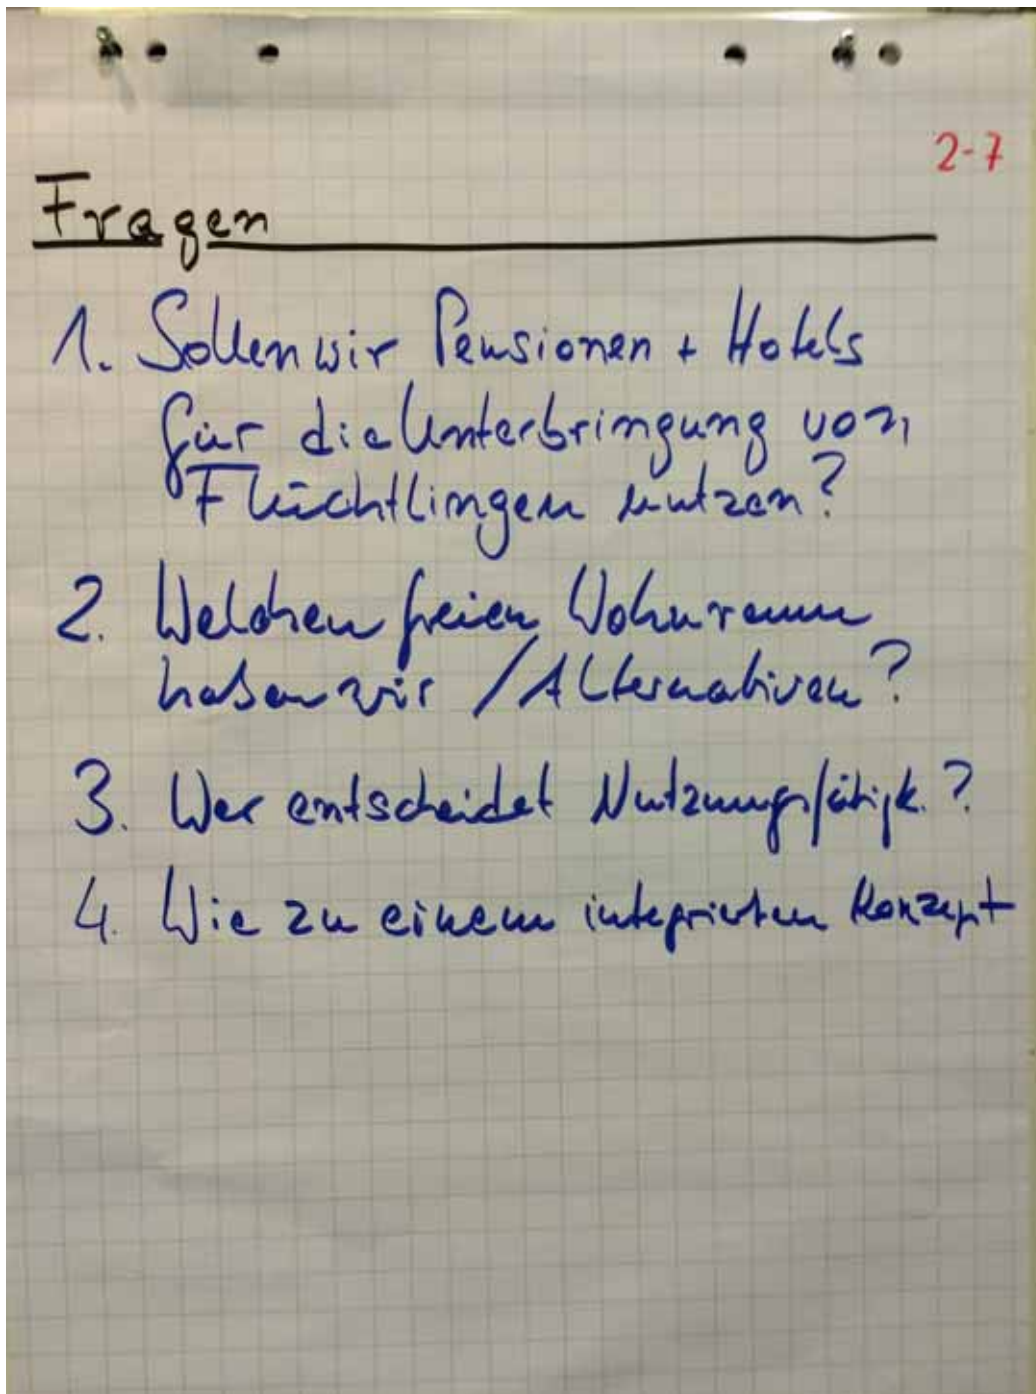 2-7
Fragen
1. Sollen wir Pensionen + Hotels
für die Unterbringung von
Flüchtlingen nutzen?
2. Welchen freien Wohnraum
haben wir / Alternativen?
3. Wer entscheidet Nutzungsfähigk.?
4. Wie zu einem integrierten Konzept